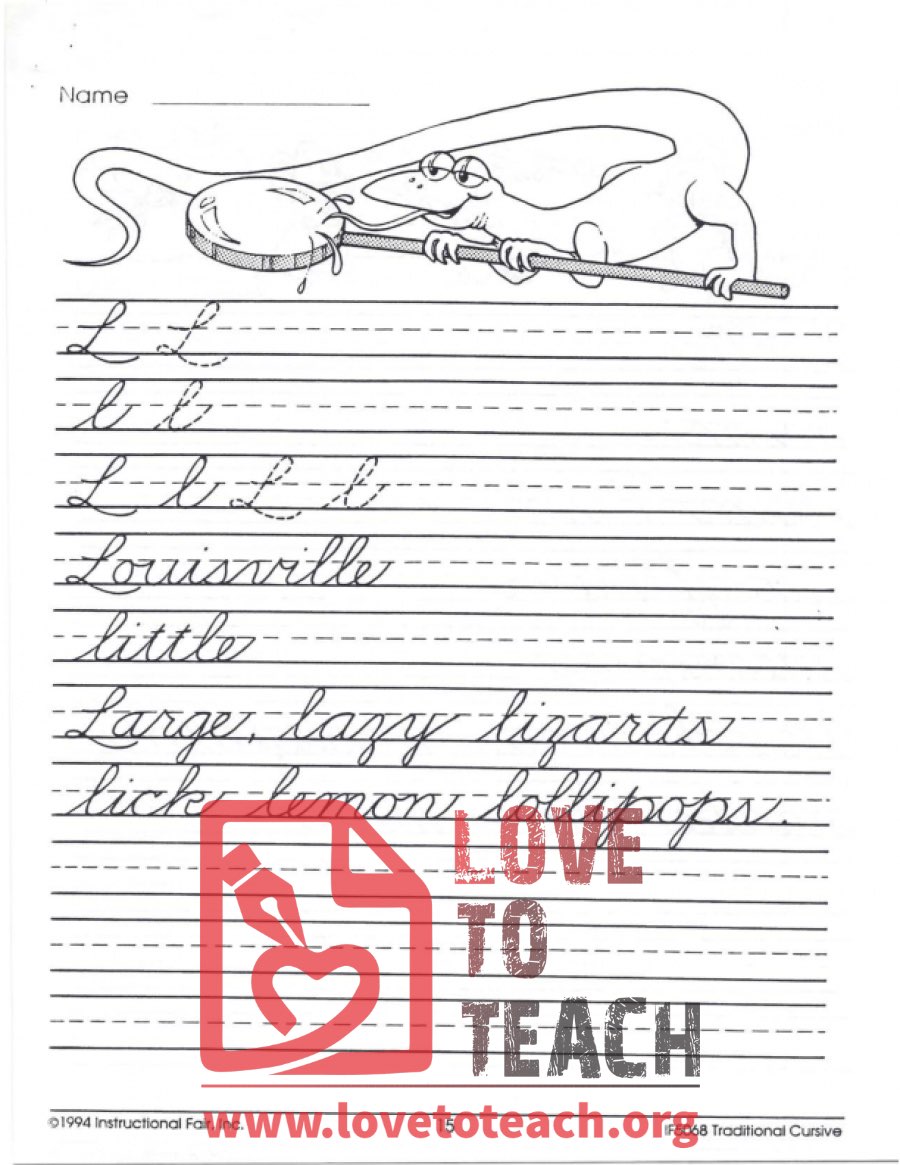 Name
L L
l l
L l L l
Louisville
little
Large, lazy lizards
lick lemon lollipops.
LOVE
TO
TEACH
www.lovetoteach.org
©1994 Instructional Fair, Inc. 15 IF5068 Traditional Cursive